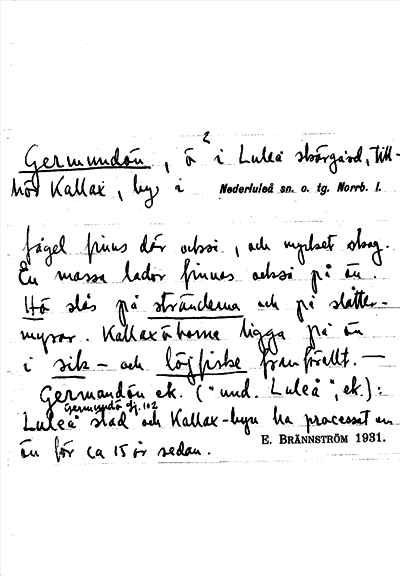 2
Germundön, ö i Luleå skärgård, till-
hör Kallax, by i Nederluleå sn. o. tg. Norrb. l.
fågel finns där också, och mycket skog.
En massa lador finnas också på ön.
Hö slås på stränderna och på slåtter-
myrar. Kallaxöborna ligga på ön
i sik- och löjfiske framförallt. —
Germandön ek. ("und. Luleå", ek.):
Germundö dj. 102
Luleå stad och Kallax-byn ha processat om
ön för ca 15 år sedan.
E. BRÄNNSTRÖM 1931.